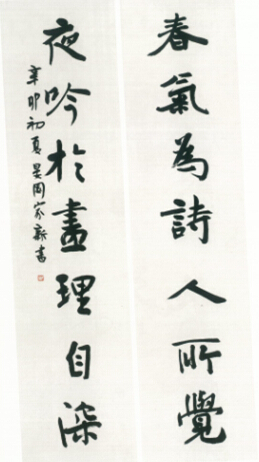 春氣為詩人所覺
夜吟於畫理自深
辛卯初夏周家新書